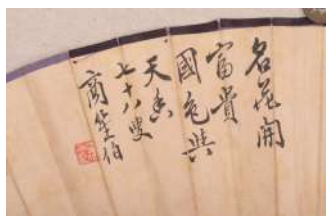 名花開
富貴
國色與
天香
七十八叟
商笙伯